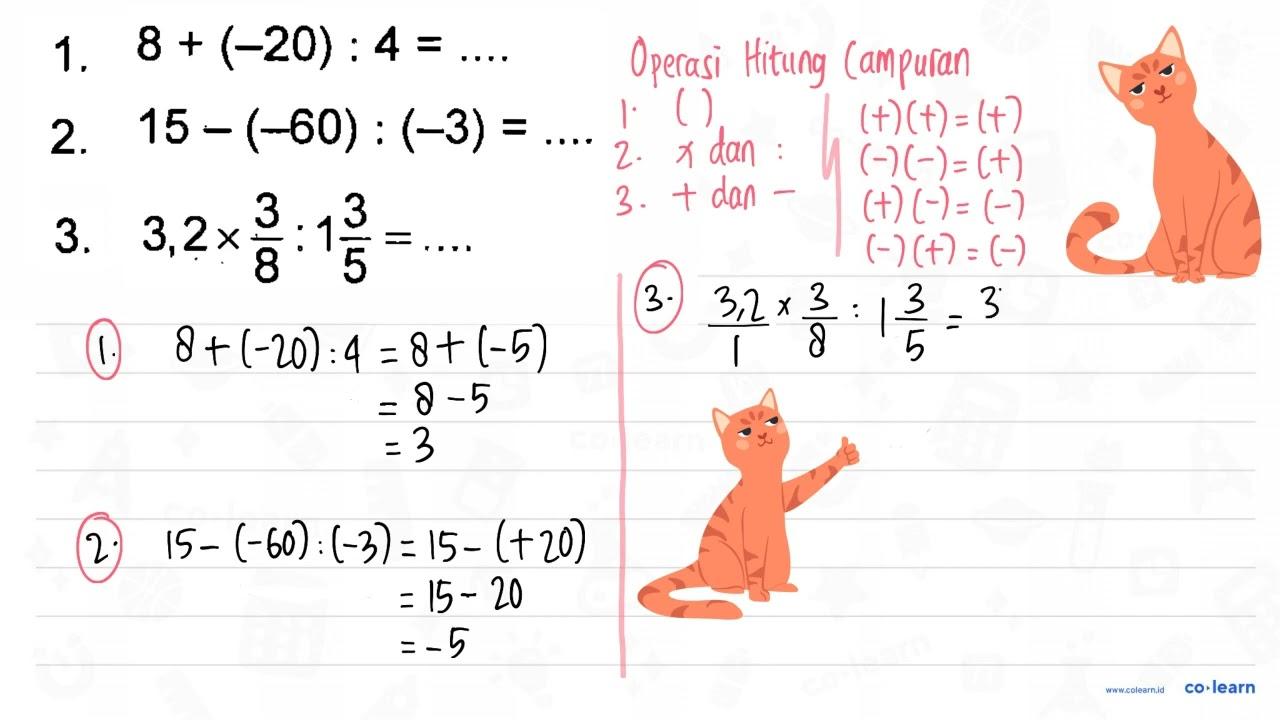 1. 8 + (–20) : 4 = ....
2. 15 – (–60) : (–3) = ....
3. 3,2 × 3/8 : 1 3/5 = ....
Operasi Hitung Campuran
1. ( )
2. x dan :
3. + dan –
(+)(+) = (+)
(-)(-) = (+)
(+)(-) = (-)
(-)(+) = (-)
1. 8 + (-20) : 4 = 8 + (-5)
= 8 - 5
= 3
2. 15 - (-60) : (-3) = 15 - (+20)
= 15 - 20
= -5
3. 3,2/1 x 3/8 : 1 3/5 = 3
co learn
www.colearn.id co·learn